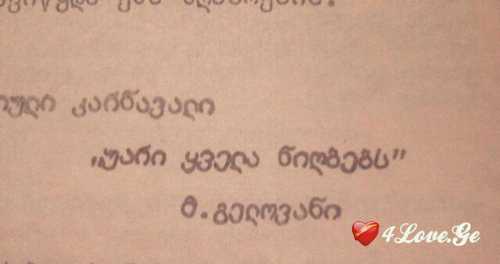 იული კარნავალი
„უარი ყველა ნიღბებს”
გ.გელოვანი
4Love.Ge